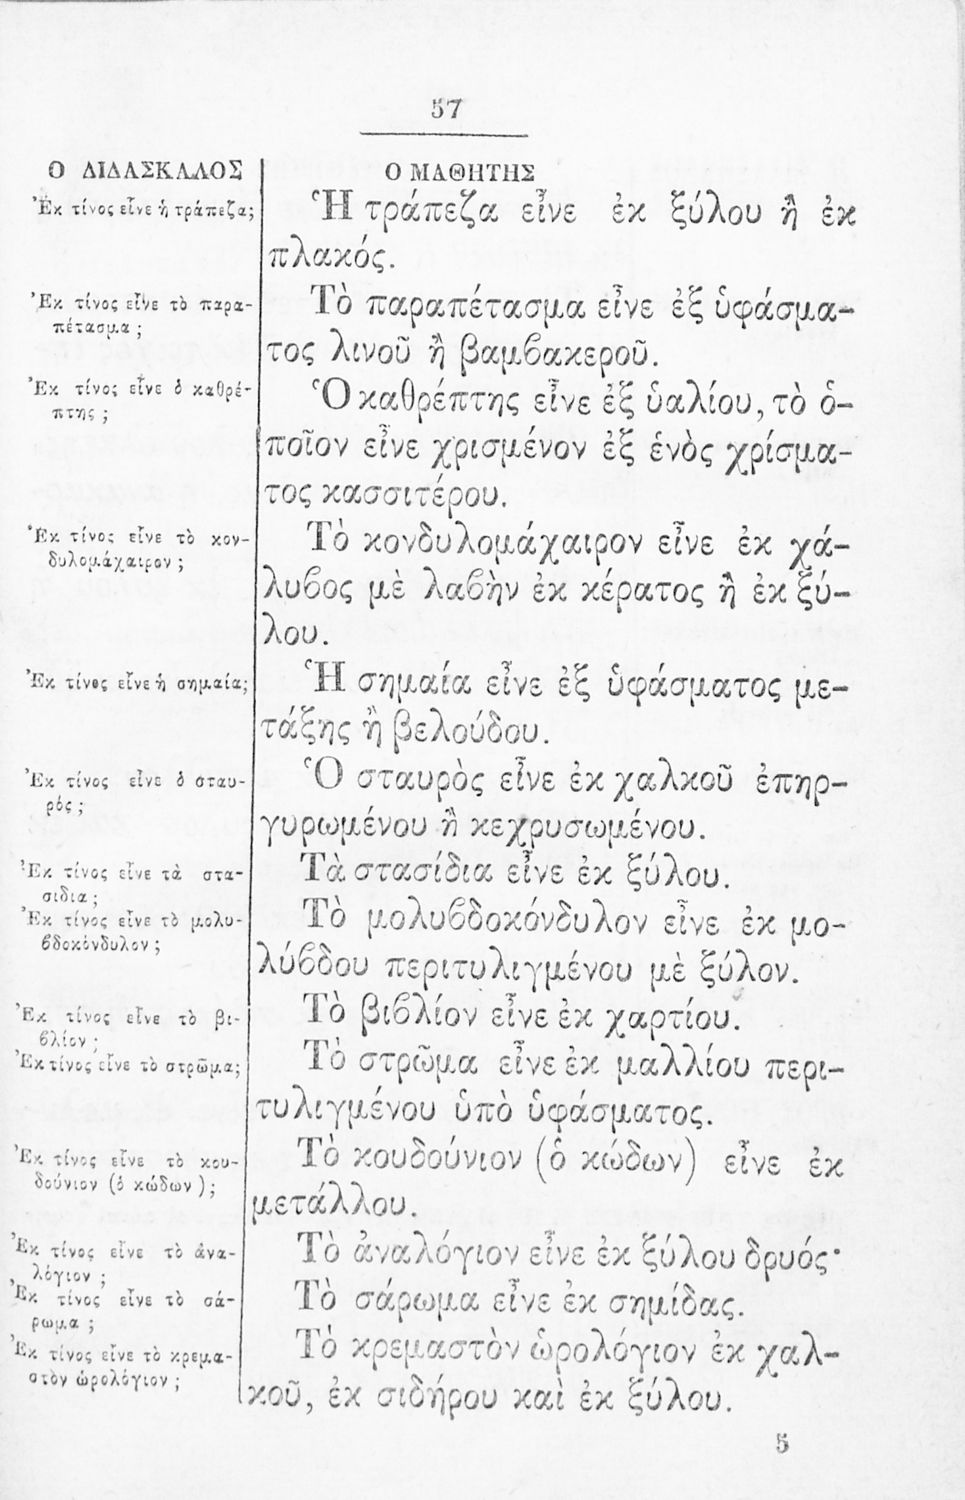 57
Ο ΔΙΔΑΣΚΑΛΟΣ
Ἐκ τίνος εἶνε ἡ τράπεζα;
Ἐκ τίνος εἶνε τὸ παρα-
πέτασμα;
Ἐκ τίνος εἶνε ὁ καθρέ-
πτης;
Ἐκ τίνος εἶνε τὸ κον-
δυλομάχαιρον;
Ἐκ τίνος εἶνε ἡ σημαία;
Ἐκ τίνος εἶνε ὁ σταυ-
ρός;
Ἐκ τίνος εἶνε τὰ στα-
σίδια;
Ἐκ τίνος εἶνε τὸ μολυ-
βδοκόνδυλον;
Ἐκ τίνος εἶνε τὸ βι-
βλίον;
Ἐκ τίνος εἶνε τὸ στρῶμα;
Ἐκ τίνος εἶνε τὸ κου-
δούνιον (ὁ κώδων);
Ἐκ τίνος εἶνε τὸ ἀνα-
λόγιον;
Ἐκ τίνος εἶνε τὸ σά-
ρωμα;
Ἐκ τίνος εἶνε τὸ κρεμα-
στὸν ὡρολόγιον;
Ο ΜΑΘΗΤΗΣ
Ἡ τράπεζα εἶνε ἐκ ξύλου ἢ ἐκ
πλακός.
Τὸ παραπέτασμα εἶνε ἐξ ὑφάσμα-
τος λινοῦ ἢ βαμβακεροῦ.
Ὁ καθρέπτης εἶνε ἐξ ὑαλίου, τὸ ὁ-
ποῖον εἶνε χρισμένον ἐξ ἑνὸς χρίσμα-
τος κασσιτέρου.
Τὸ κονδυλομάχαιρον εἶνε ἐκ χά-
λυβος μὲ λαβὴν ἐκ κέρατος ἢ ἐκ ξύ-
λου.
Ἡ σημαία εἶνε ἐξ ὑφάσματος με-
τάξης ἢ βελούδου.
Ὁ σταυρὸς εἶνε ἐκ χαλκοῦ ἐπηρ-
γυρωμένου ἢ κεχρυσωμένου.
Τὰ στασίδια εἶνε ἐκ ξύλου.
Τὸ μολυβδοκόνδυλον εἶνε ἐκ μο-
λύβδου περιτυλιγμένου μὲ ξύλον.
Τὸ βιβλίον εἶνε ἐκ χαρτίου.
Τὸ στρῶμα εἶνε ἐκ μαλλίου περι-
τυλιγμένου ὑπὸ ὑφάσματος.
Τὸ κουδούνιον (ὁ κώδων) εἶνε ἐκ
μετάλλου.
Τὸ ἀναλόγιον εἶνε ἐκ ξύλου δρυός·
Τὸ σάρωμα εἶνε ἐκ σημίδας.
Τὸ κρεμαστὸν ὡρολόγιον ἐκ χαλ-
κοῦ, ἐκ σιδήρου καὶ ἐκ ξύλου.
5